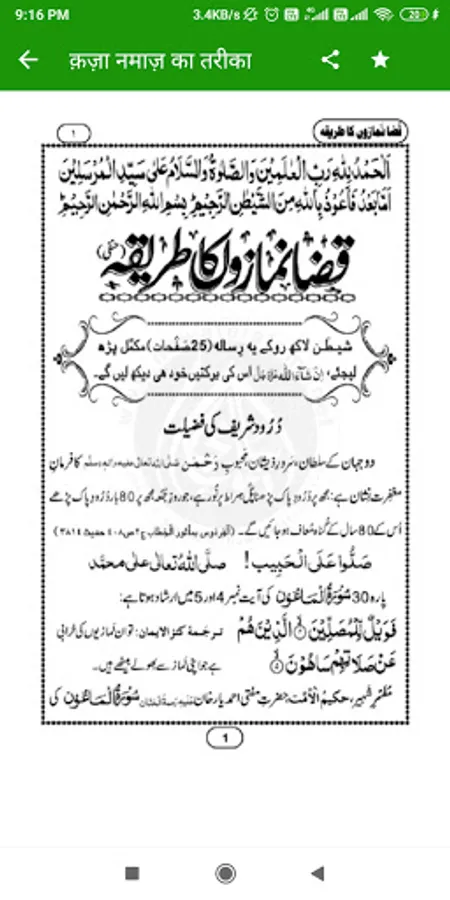 9:16 PM 3.4KB/s 20
क़ज़ा नमाज़ का तरीका
قضا نمازوں کا طریقہ ۱
اَلْحَمْدُ لِلّٰهِ رَبِّ الْعٰلَمِيْنَ وَالصَّلٰوةُ وَالسَّلَامُ عَلٰى سَيِّدِ الْمُرْسَلِيْنَ
اَمَّا بَعْدُ فَاَعُوْذُ بِاللّٰهِ مِنَ الشَّيْطٰنِ الرَّجِيْمِ بِسْمِ اللّٰهِ الرَّحْمٰنِ الرَّحِيْمِ
قضا نمازوں کا طریقہ (حنفی)
شیطٰن لاکھ روکے یہ رسالہ (25 صَفْحات) مکمَّل پڑھ
لیجئے، اِنْ شَآءَ اللّٰه عَزَّوَجَلَّ اس کی برکتیں خود ہی دیکھ لیں گے۔
دُرُود شریف کی فضیلت
دو جہان کے سلطان، سرورِ ذیشان، محبوبِ رَحْمٰن صَلَّى اللّٰهُ تَعَالٰى عَلَيْهِ وَاٰلِهٖ وَسَلَّم کا فرمانِ
مغفرت نشان ہے: مجھ پر دُرُودِ پاک پڑھنا پُل صِراط پر نور ہے، جو روزِ جمعہ مجھ پر 80 بار دُرُودِ پاک پڑھے
اُس کے 80 سال کے گناہ مُعاف ہو جائیں گے۔ (الفردوس بمأثور الخطاب ج۲ ص۴۰۸ حدیث ۳۸۱۴)
صَلُّوْا عَلَى الْحَبِيْب! صلَّى اللّٰهُ تعالٰى علٰى محمَّد
پارہ 30 سُوْرَةُ الْمَاعُوْن کی آیت نمبر 4 اور 5 میں ارشاد ہوتا ہے:
فَوَيْلٌ لِّلْمُصَلِّيْنَ ۙ۴ الَّذِيْنَ هُمْ ترجَمۂ کنز الایمان: تو ان نمازیوں کی خرابی
عَنْ صَلَاتِهِمْ سَاهُوْنَ ۙ۵ ہے جو اپنی نماز سے بھولے بیٹھے ہیں۔
مُفَسِّرِ شہیر، حکیمُ الْاُمَّت، حضرتِ مفتی احمد یار خان عَلَيْهِ رَحْمَةُ الْحَنَّان سُوْرَةُ الْمَاعُوْن کی
1